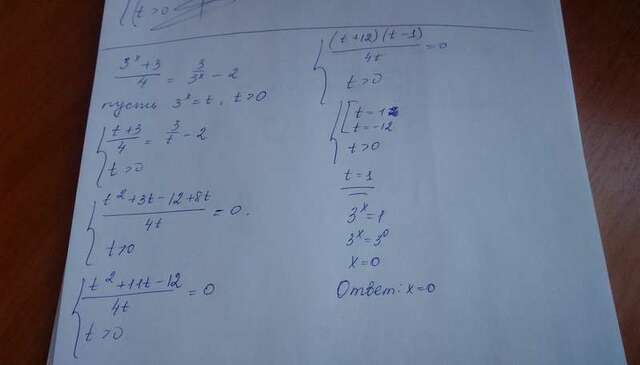 { t>0
(3^x+3)/4 = 3/3^x - 2
пусть 3^x=t, t>0
{ (t+3)/4 = 3/t - 2
t>0
{ (t^2+3t-12+8t)/4t = 0.
t>0
{ (t^2+11t-12)/4t = 0
t>0
{ ((t+12)(t-1))/4t = 0
t>0
{ [ t=1
t=-12
t>0
t=1
3^x=1
3^x=3^0
x=0
Ответ: x=0